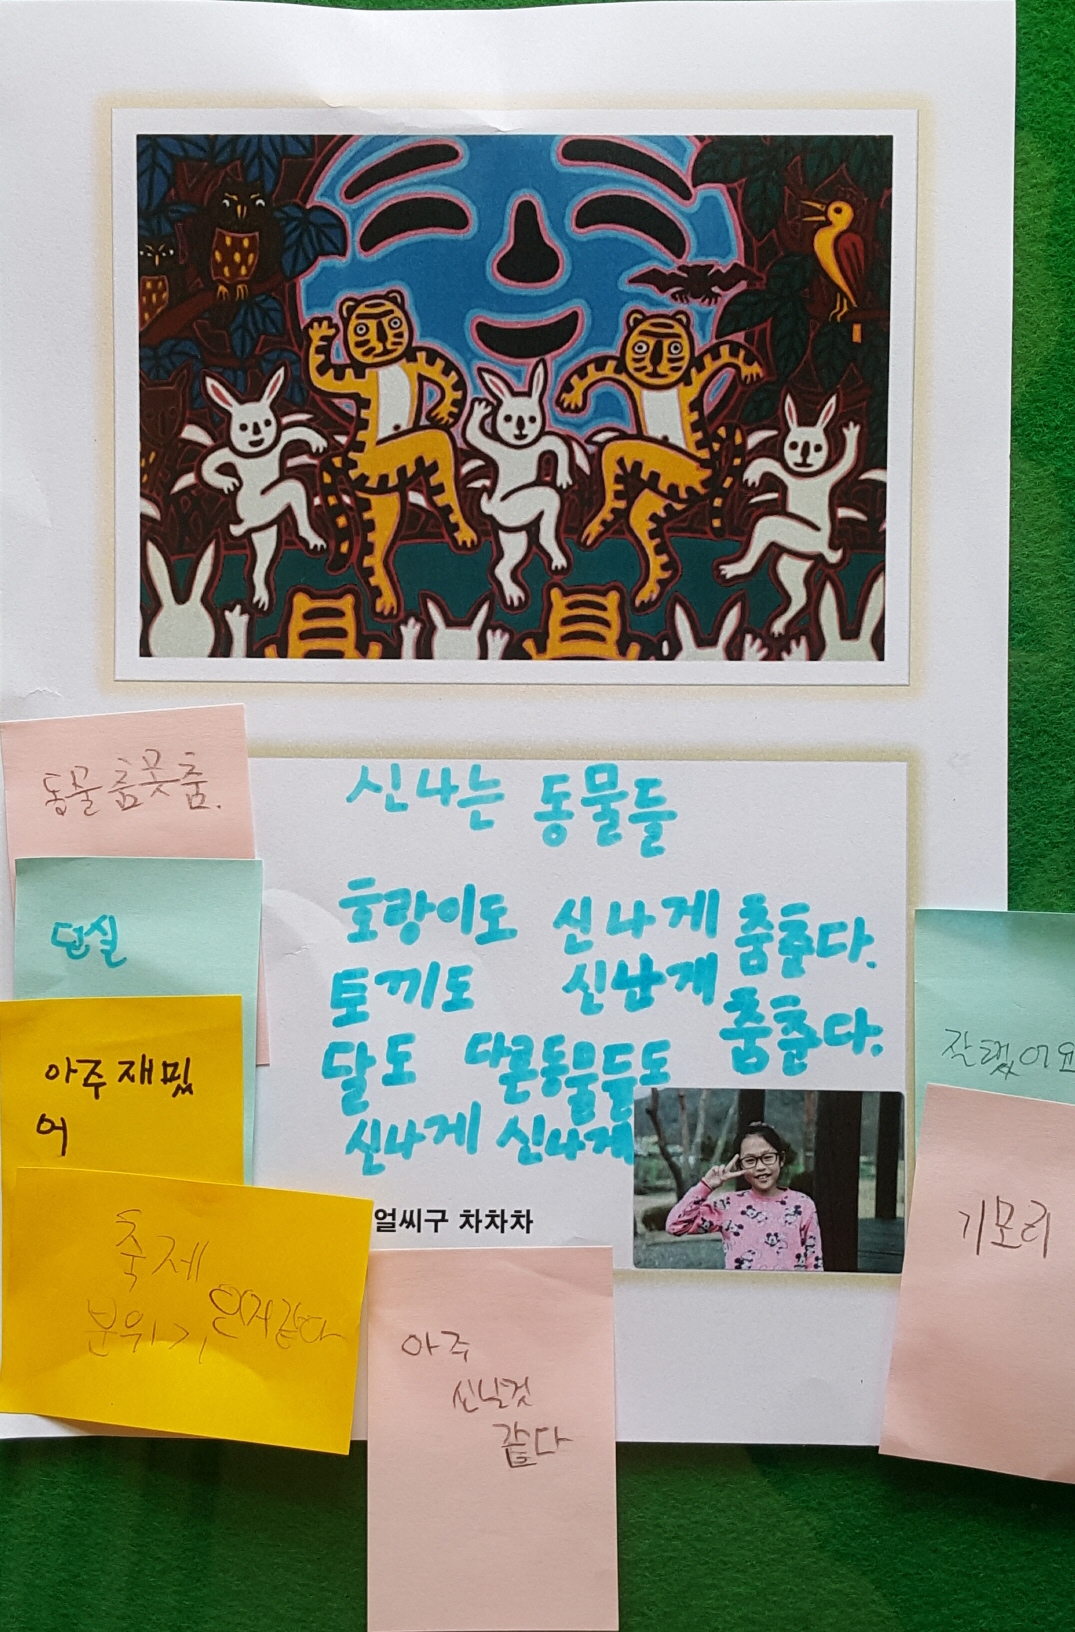 신나는 동물들
호랑이도 신나게 춤춘다.
토끼도 신난게 춤춘다.
달도 다른동물들도
신나게 신나게
얼씨구 차차차
동물춤못춤.
던실
아주재밌
어
축제
분위기 인거같다
아주
신날것
같다
잘했어요
기모리